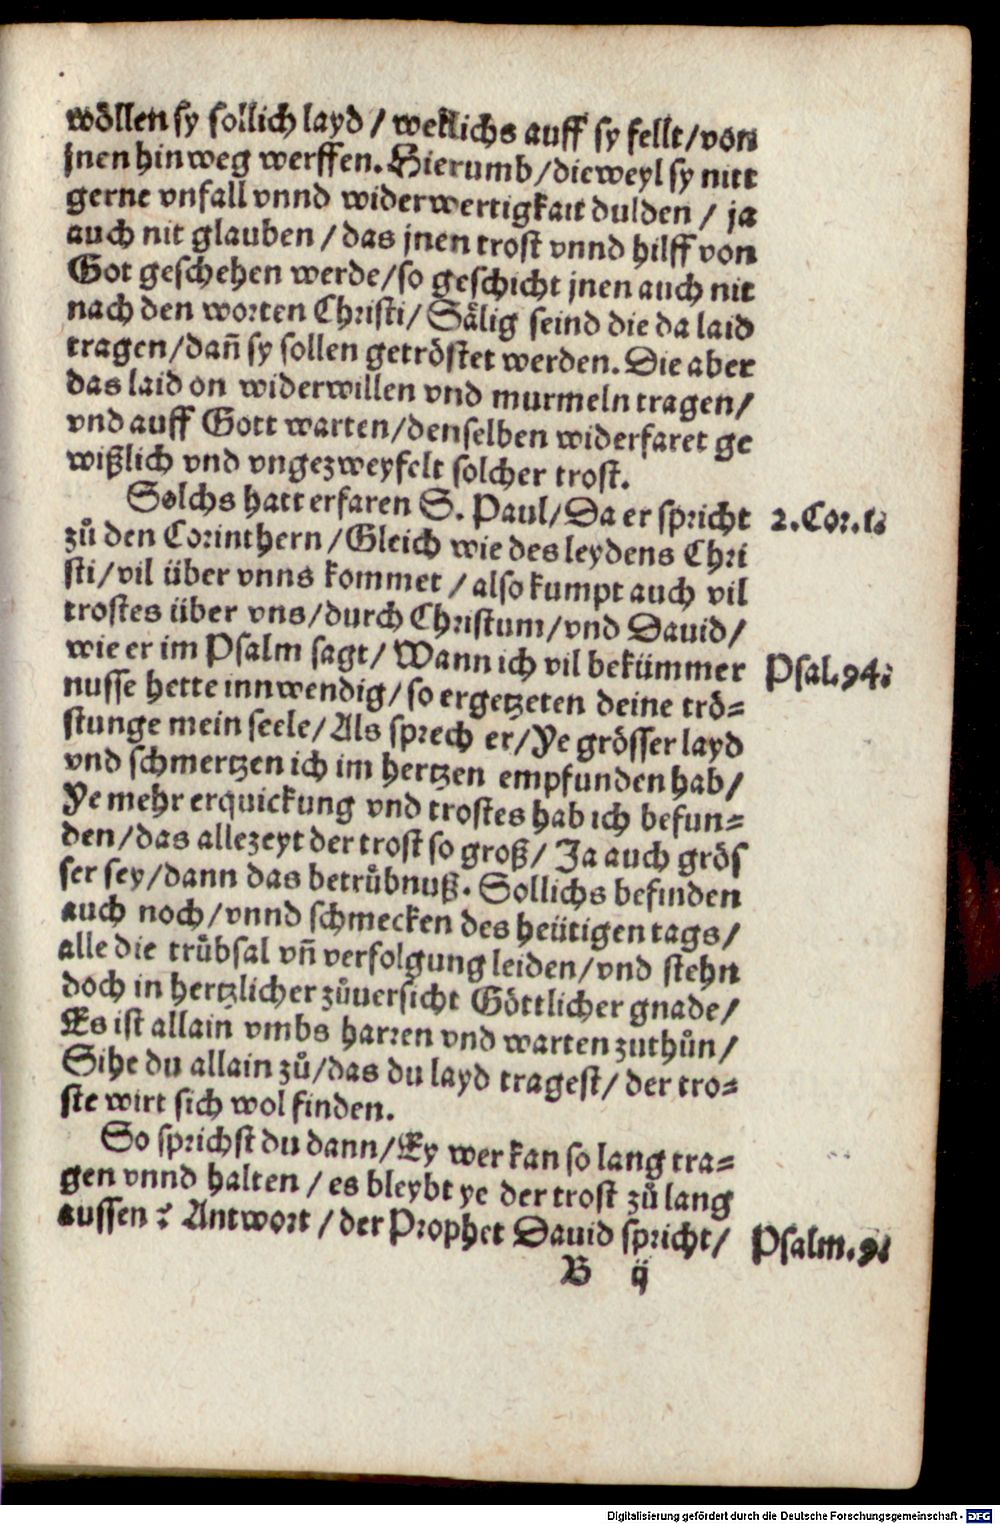 wöllen sy sollich layd / wellichs auff sy fellt / von
jnen hinweg werffen. Hierumb / dieweyl sy nitt
gerne vnfall vnnd widerwertigkait dulden / ja
auch nit glauben / das jnen trost vnnd hilff von
Got geschehen werde / so geschicht jnen auch nit
nach den worten Christi / Sälig seind die da laid
tragen / dañ sy sollen getröstet werden. Die aber
das laid on widerwillen vnd murmeln tragen /
vnd auff Gott warten / denselben widerfaret ge
wißlich vnd vngezweyfelt solcher trost.
Solchs hatt erfaren S. Paul / Da er spricht
2. Cor. 1.
zů den Corinthern / Gleich wie des leydens Chri
sti / vil über vnns kommet / also kumpt auch vil
trostes über vns / durch Christum / vnd Dauid /
wie er im Psalm sagt / Wann ich vil bekümmer
Psal. 94.
nusse hette innwendig / so ergetzeten deine trö-
stunge mein seele / Als sprech er / Ye grösser layd
vnd schmertzen ich im hertzen empfunden hab /
Ye mehr erquickung vnd trostes hab ich befun-
den / das allezeyt der trost so groß / Ja auch grös
ser sey / dann das betrůbnuß. Sollichs befinden
auch noch / vnnd schmecken des heütigen tags /
alle die trůbsal vñ verfolgung leiden / vnd stehn
doch in hertzlicher zůuersicht Göttlicher gnade /
Es ist allain vmbs harren vnd warten zuthůn /
Sihe du allain zů / das du layd tragest / der tro-
ste wirt sich wol finden.
So sprichst du dann / Ey wer kan so lang tra-
gen vnnd halten / es bleybt ye der trost zů lang
aussen? Antwort / der Prophet Dauid spricht /
Psalm. 9.
B ij
Digitalisierung gefördert durch die Deutsche Forschungsgemeinschaft - DFG